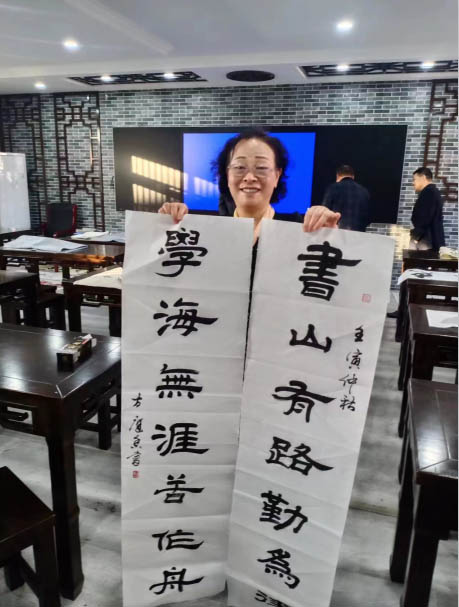 書山有路勤為
壬寅仲秋
學海無涯苦作舟